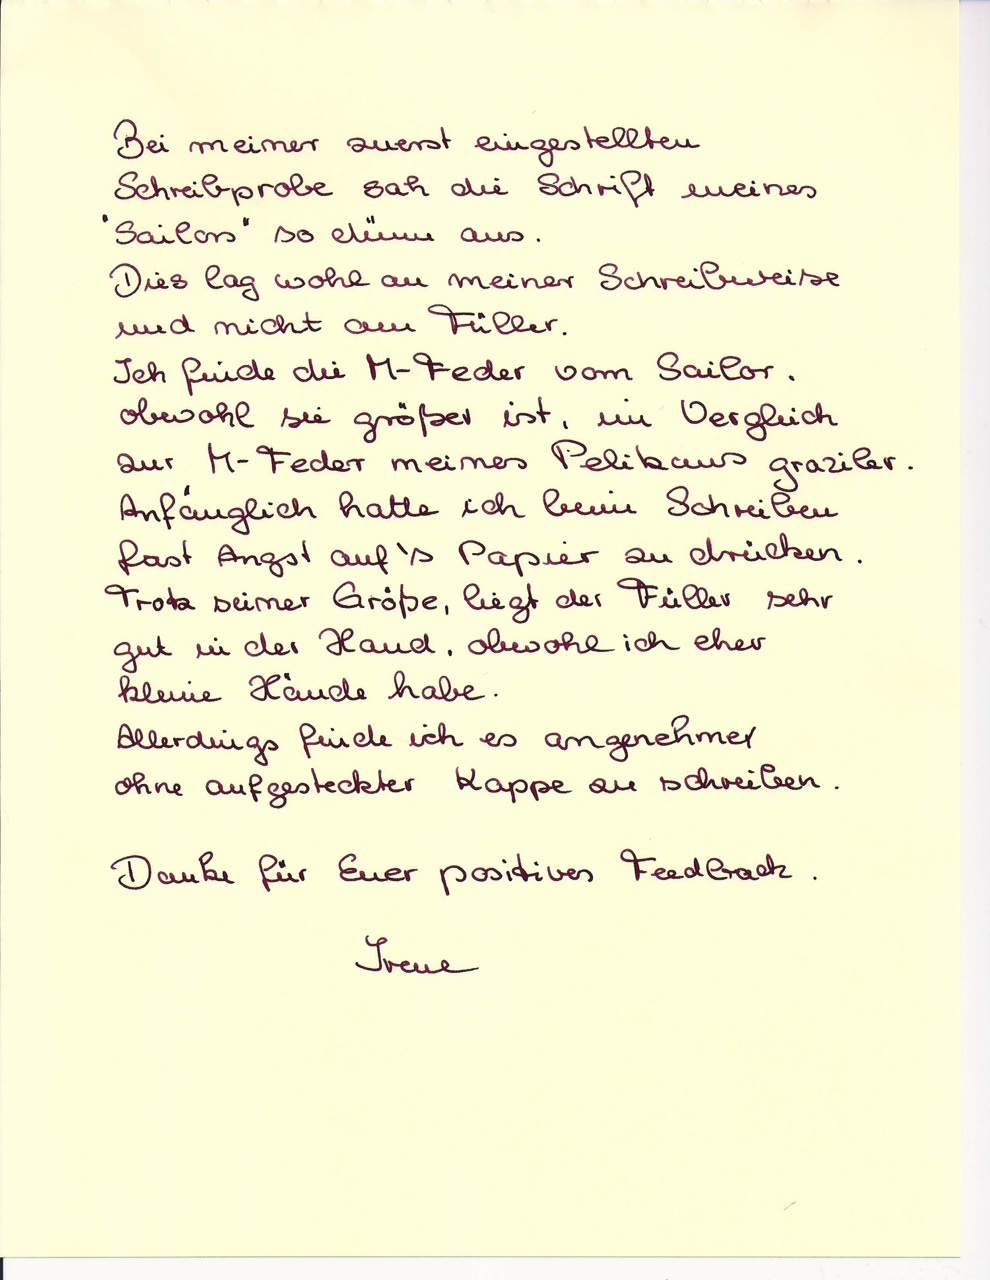 Bei meiner zuerst eingestellten
Schreibprobe sah die Schrift meines
"Sailors" so dünn aus.
Dies lag wohl an meiner Schreibweise
und nicht am Füller.
Ich finde die M-Feder vom Sailor.
obwohl sie größer ist, im Vergleich
zur M-Feder meines Pelikans graziler.
Anfänglich hatte ich beim Schreiben
fast Angst auf's Papier zu drücken.
Trotz seiner Größe, liegt der Füller sehr
gut in der Hand, obwohl ich eher
kleine Hände habe.
Allerdings finde ich es angenehmer
ohne aufgesteckter Kappe zu schreiben.
Danke für Euer positives Feedback.
Irene